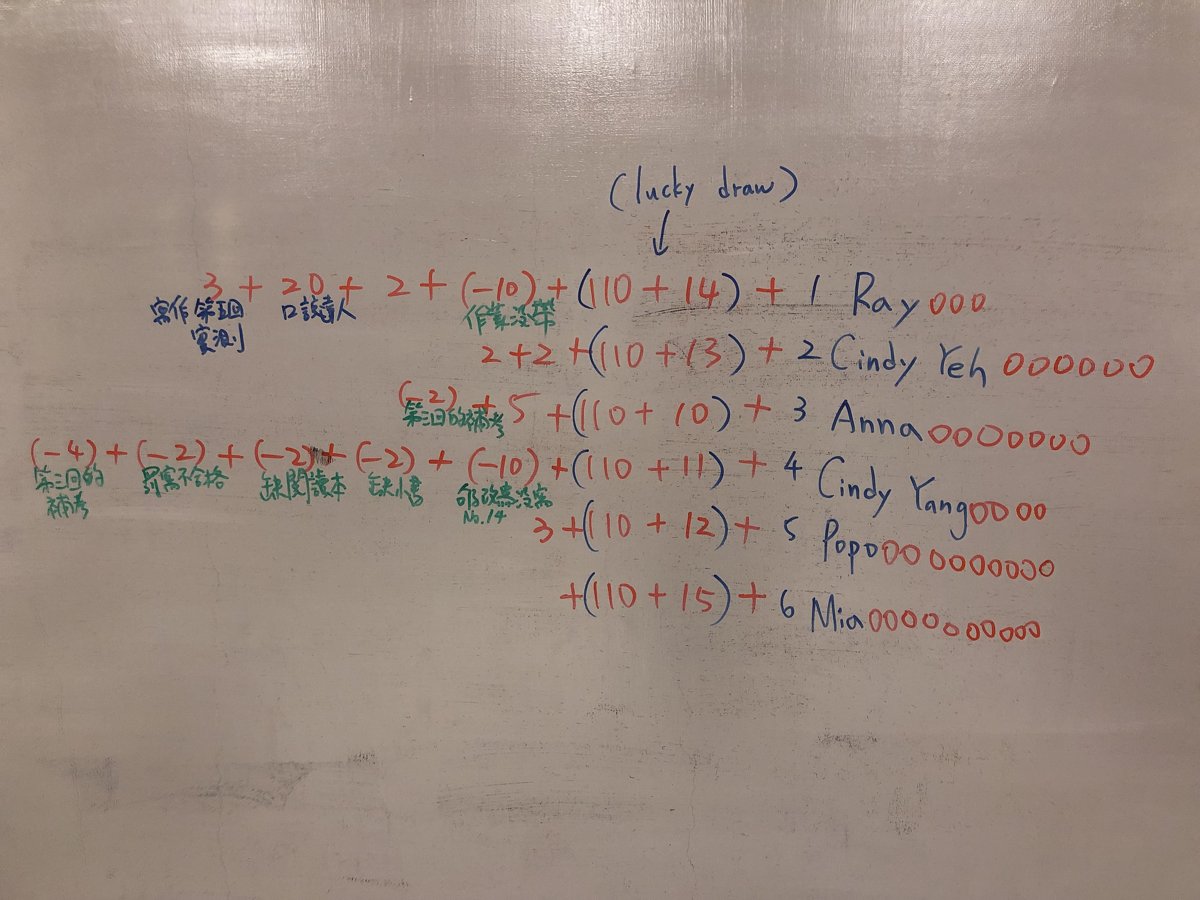 (lucky draw)
↓
3 + 20 + 2 + (-10) + (110 + 14) + 1 Ray OOO
寫作第五回 口說達人 作業沒帶
實測
2 + 2 + (110 + 13) + 2 Cindy Yeh OOOOOO
(-2) + 5 + (110 + 10) + 3 Anna OOOOOOO
第三回的補考
(-4) + (-2) + (-2) + (-2) + (-10) + (110 + 11) + 4 Cindy Yang OOOO
第三回的 罰寫不合格 缺閱讀本 缺小書
補考 No.14
3 + (110 + 12) + 5 Popo OOOOOOOOO
+ (110 + 15) + 6 Mia OOOOOOOOO